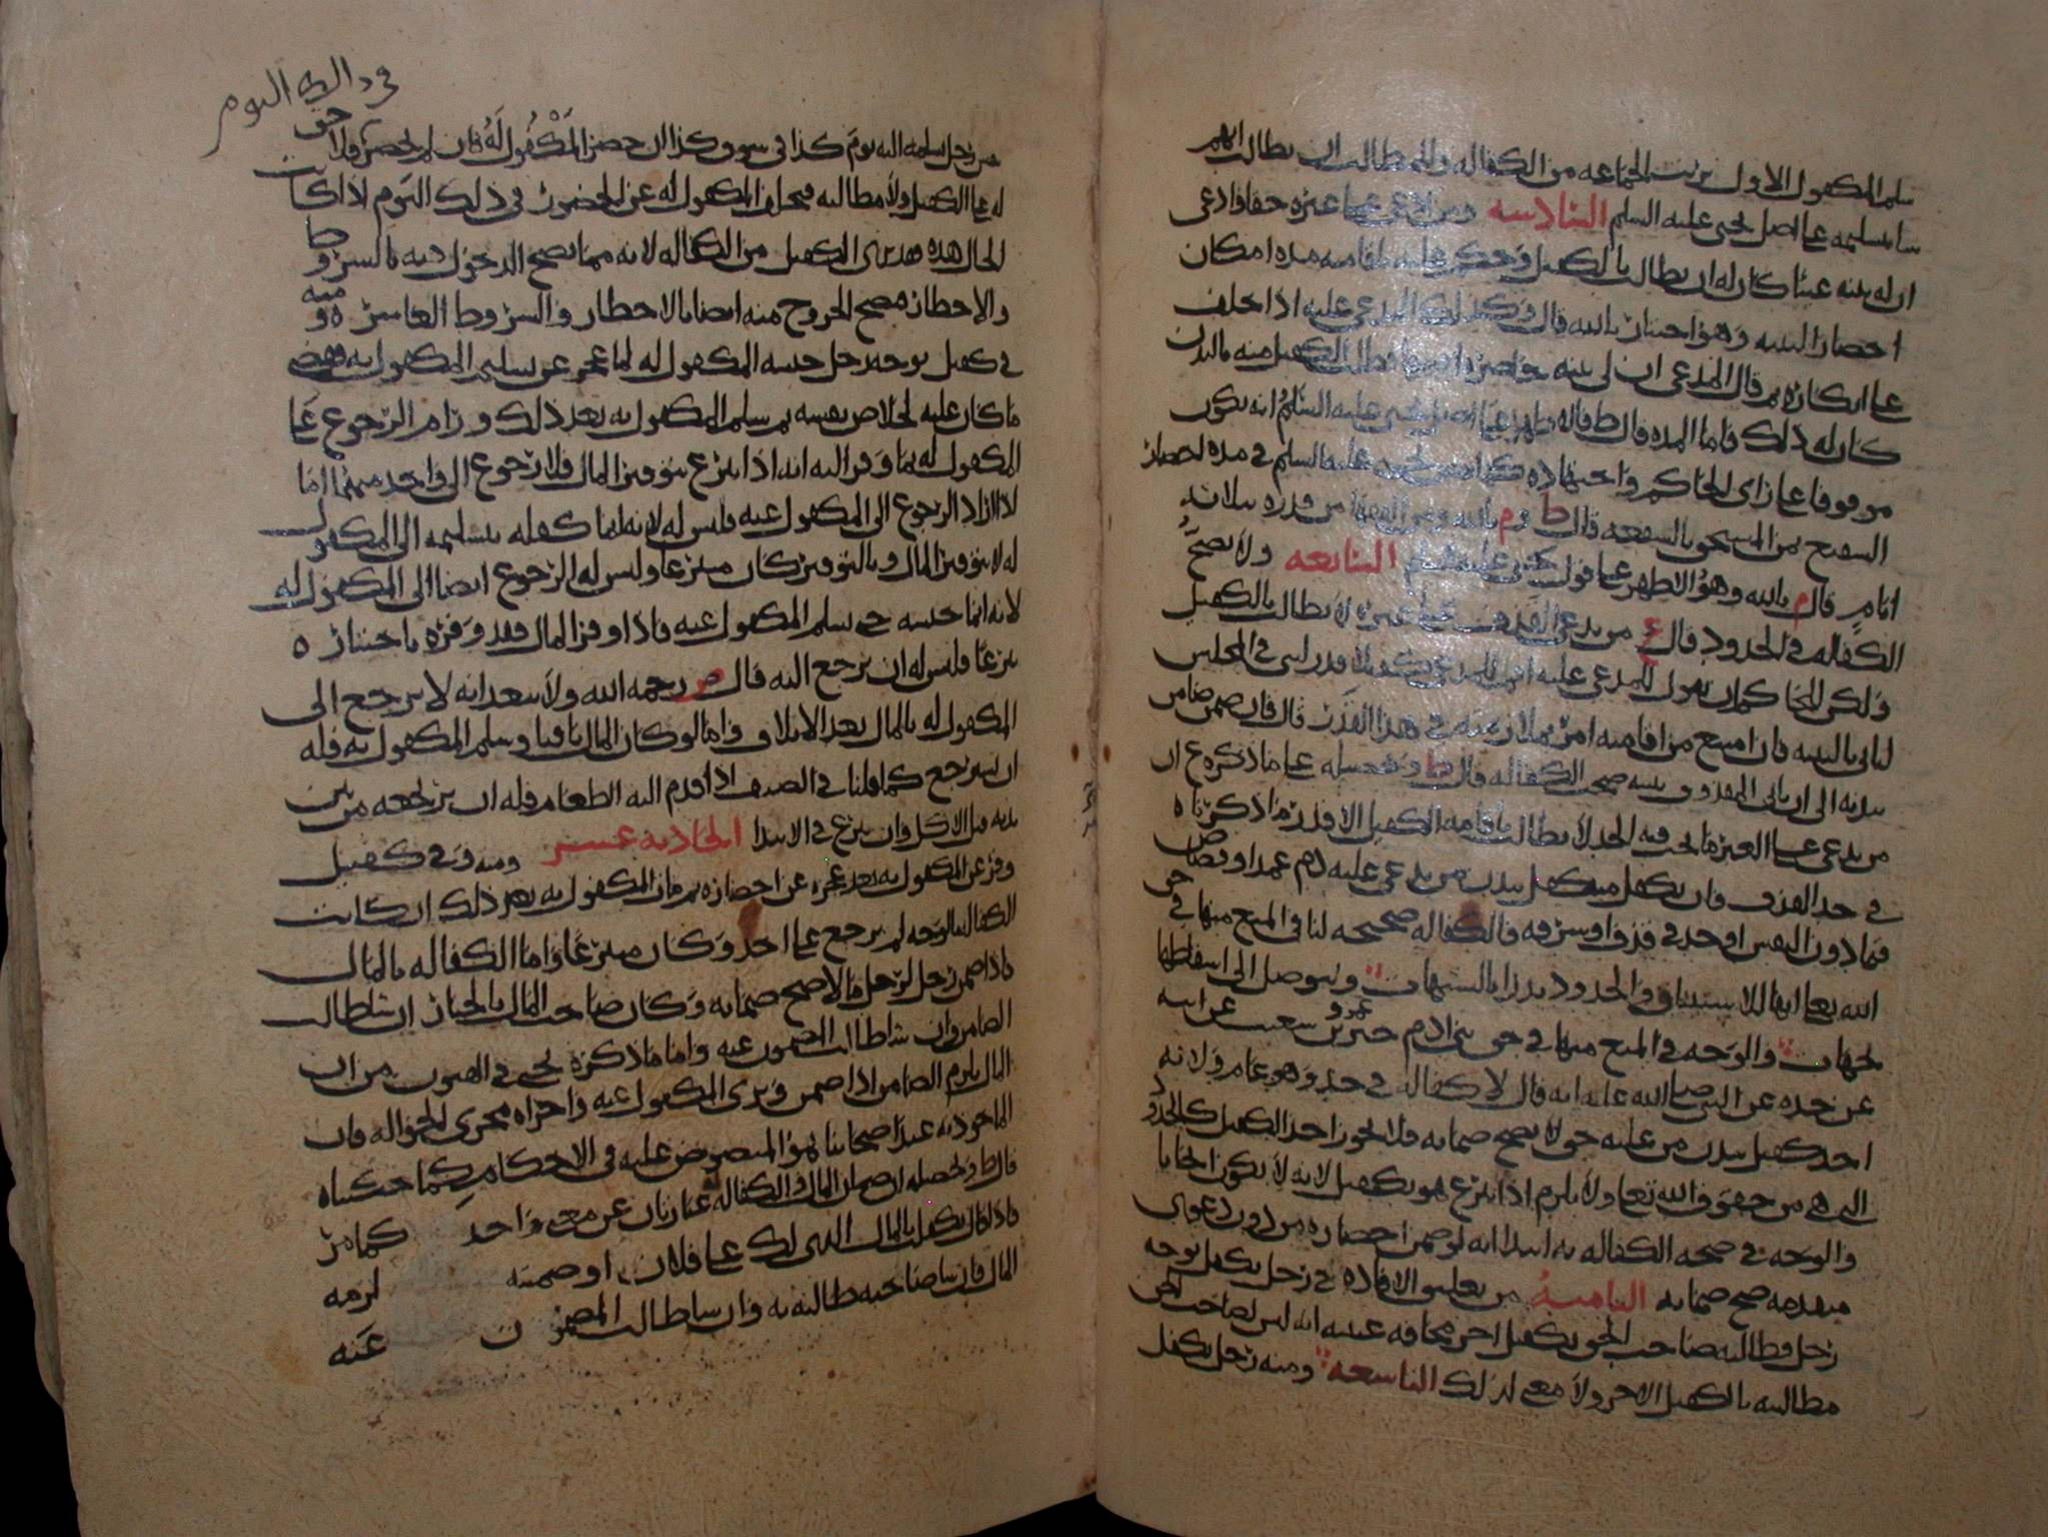 سلم المكفول الاول برئت الجماعه من الكفاله وللمطالب ان يطالب ايهم
شا بتسليمه على اصل يحيى عليه السلم السادسه ومن ادعى على غيره حقا وادعى
ان له بينه غيبا كان له ان يطالب بالكفيل وحكم عليه باقامته مده امكان
احضار البينه وهو اختيار بالله قال وكذلك المدعى عليه اذا حلف
على انكاره ثم قال المدعي ان لي بينه طالب الكفيل منه بالبدن
كان له ذلك فاما المده قال ط فالاظهر على يحيى عليه السلم انه يكون
موقوفا على راى الحاكم واجتهاده يحيى عليه السلم في مده احضار
الشفيع ثمن المستحق بالشفعه قال ط وم بالله ومن الفقها من قدره بثلاثه
ايام قال م بالله وهو الاظهر على قول يحيى عليه السلم السابعه ولا تصح
الكفاله في الحدود قال ع من يدعي القذف على غيره لا يطالب بالكفيل
ولكن للحاكم ان يقول للمدعى عليه للمدعي بكفيل قدر لبثي في المجلس
لياتي بالبينه فان امتنع من اقامته امر بملازمته في هذا القدر قال فان ضمن ضامن
ببدنه الى ان ياتي المقذوف ببينه صحت الكفاله قال ط وتحصيله على ما ذكره ع ان
من يدعى على الغير ما يجب فيه الحد لا يطالب باقامه الكفيل الا قدر ما ذكرناه
في حد القذف فان تكفل متكفل ببدن من يدعى عليه دم عمد او قصاص
فيما دون النفس او حد في قذف او سرقه فالكفاله صحيحه لنا في المنع منها في حق
الله تعالى انها للاستيثاق والحدود تدرا بالشبهات ويتوصل الى اسقاطها
لجهات والوجه في المنع منها في حق بني ادم خبر عمرو بن شعيب عن ابيه
عن جده عن النبي صلى الله عليه انه قال لا كفاله في حد وهو عام ولانه
احد كفيل ببدن من عليه حق لا يصح ضمانه فلا يجوز اخذ الكفيل كالحدود
التي هي من حقوق الله تعالى ولا يلزم اذا تبرع هو بكفيل لانه لا يكون
والوجه في صحه الكفاله به ابتدا انه لو ضمن احضاره من دون دعوى
متقدمه صح ضمانه الثامنه من تعليق الافاده في رجل تكفل بوجه
رجل وطالبه صاحب الحق بكفيل اخر مخافه غيبته انه ليس لصاحب الحق
مطالبته بالكفيل الاخر ولا معنى لذلك التاسعه ومنه رجل تكفل
في ذلك اليوم
من رجل بتسلمه اليه يوم كذا في سوق كذا ان حضر المكفول له فان لم يحضر فلا حق
له على الكفيل ولا مطالبه فتخلف المكفول له عن الحضور في ذلك اليوم اذا كانت
الحال هذه فقد برى الكفيل من الكفاله لانه مما يصح الدخول فيه بالشروط
والاخطار فصح الخروج منه ايضا بالاخطار والشروط العاشره ومنه
في كفيل بوجه رجل حبسه المكفول له لما عجز عن تسليم المكفول به فقضى
ما كان عليه لخلاص نفسه ثم سلم المكفول به بعد ذلك ورام الرجوع على
المكفول له بما وفر اليه انه اذا تبرع بتوفير المال فلا رجوع الى واحد منهما اما
اذا اراد الرجوع الى المكفول عنه فليس له لانه انما كفله بتسليمه الى المكفول
له لا بتوفير المال وبالتوفير كان متبرعا وليس له الرجوع ايضا الى المكفول له
لانه انما حبسه حتى يسلم المكفول عنه فاذا وفر المال فقد وفره باختياره
تبرعا فليس له ان يرجع اليه قال ص رحمه الله ولا يبعد انه لا يرجع الى
المكفول له بالمال بعد الاتلاف واما لو كان المال باقيا وسلم المكفول به فله
ان يسترجع كما قلنا في الضيف اذا قدم اليه الطعام فله ان يرتجعه من بين
يديه قبل الاكل وان تبرع في الابتدا الحاديه عشر ومنه وفي كفيل
وفر عن المكفول به بعد عجزه عن احضاره ثم مات المكفول به بعد ذلك ان كانت
الكفاله بالوجه لم يرجع على احد وكان متبرعا واما الكفاله بالمال
فاذا ضمن رجل لرجل مالا صح ضمانه وكان صاحب المال بالخيار ان شا طالب
الضامن وان شا طالب المضمون عنه واما ما ذكره يحيى في الفنون من ان
المال يلزم الضامن اذا ضمن وبرى المكفول عنه واجراه مجرى الحواله فان
الماخوذ به عند اصحابنا هو المنصوص عليه في الاحكام كما حكيناه
قال ط وتحصيله ان ضمان المال والكفاله عبارتان عن معنى واحد كما مر
فاذا قال تكفلت بالمال الذي لك على فلان او ضمنته لزمه
المال فان شا صاحبه طالبه به وان شا طالب المضمون عنه